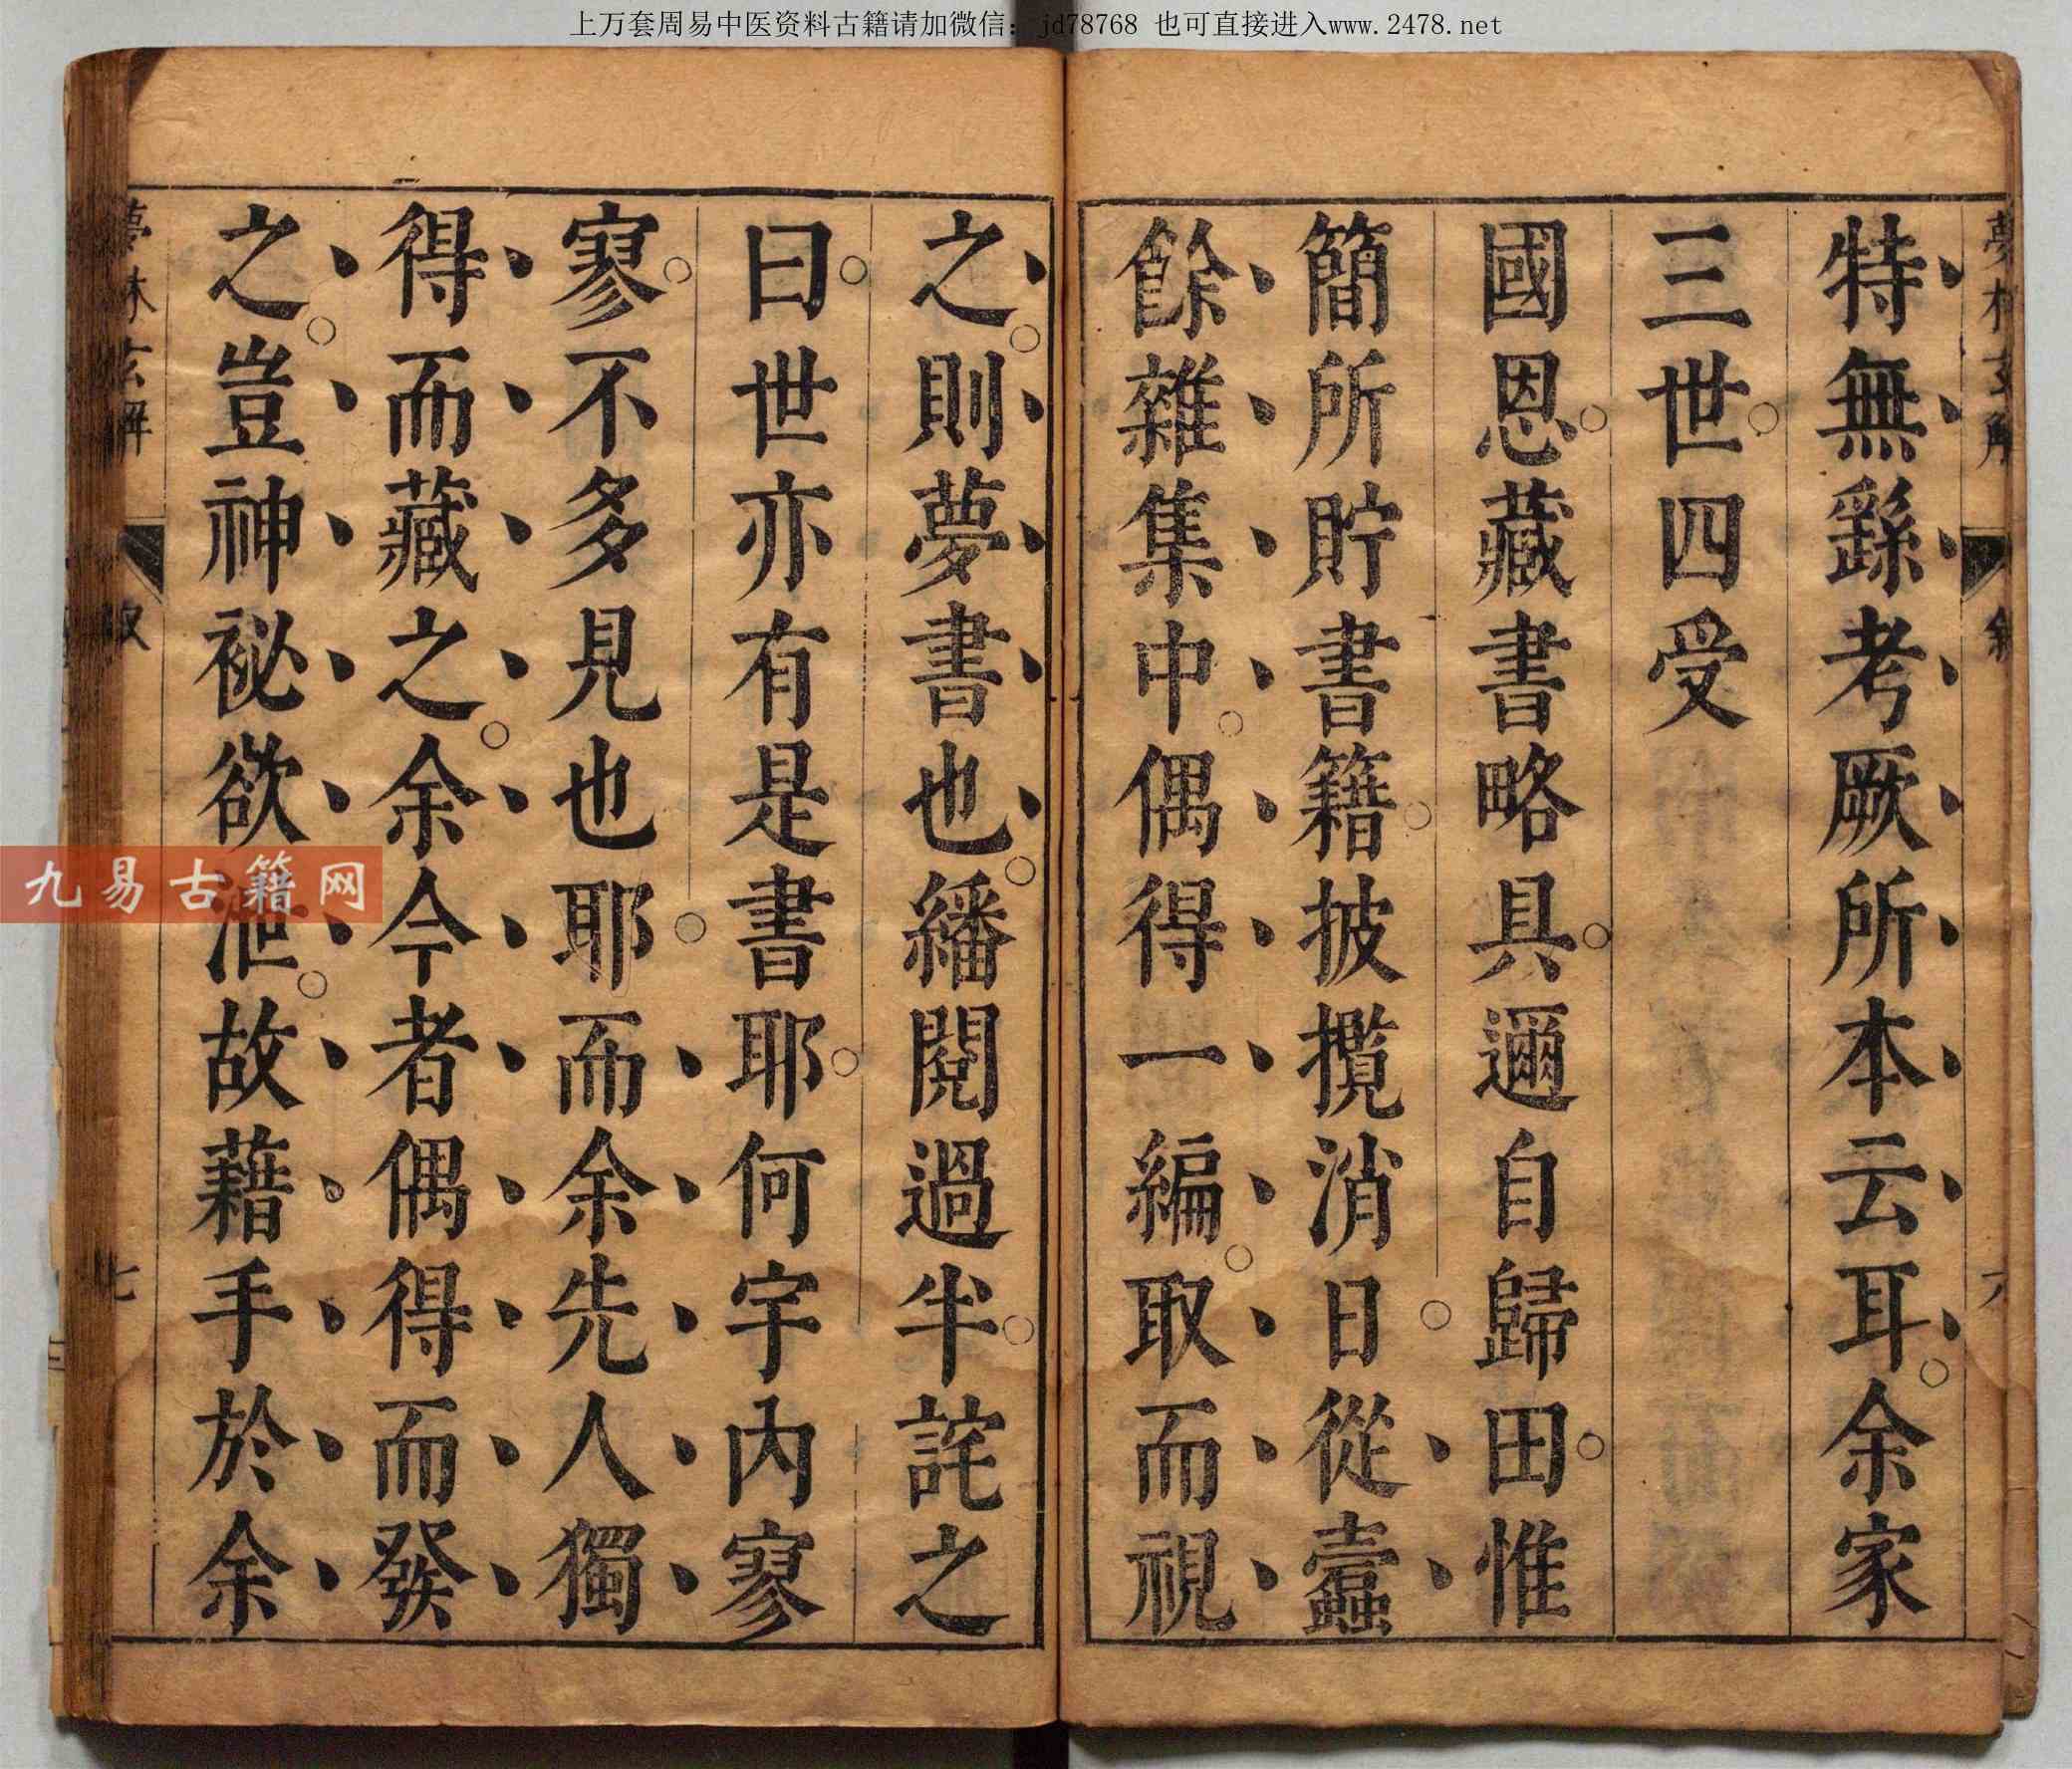 上万套周易中医资料古籍请加微信：jd78768 也可直接进入www.2478.net
特無繇考厥所本云耳余家
三世四受
國恩藏書略具邇自歸田惟
簡所貯書籍披攬消日從蠹
餘雜集中偶得一編取而視
之則夢書也繙閱過半詫之
曰世亦有是書耶何宇內寥
寥不多見也耶而余先人獨
得而藏之余今者偶得而發
之豈神祕欲泄故藉手於余
夢林玄解
敘
七
九易古籍网